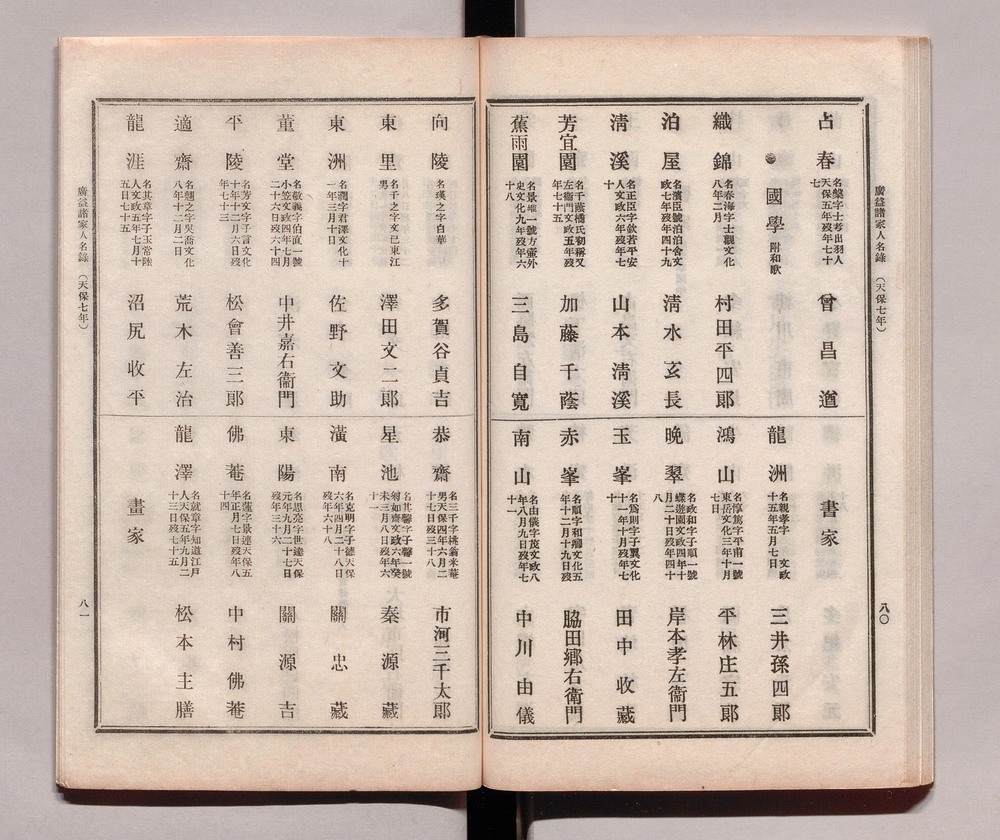 廣益諸家人名錄 (天保七年)
八〇
占春 名槃字士考出羽人天保五年歿年七十七 曾昌道
國學 附和歌
織錦 名春海字士觀文化八年二月 村田平四郞
泊屋 名濱臣號泊洎舍文政七年歿年四十九 淸水玄長
淸溪 名正臣字欽若平安人文政六年歿年七十 山本淸溪
芳宜園 名千蔭橘氏初稱又左衞門文政五年歿年七十五 加藤千蔭
蕉雨園 名景雄一號方壷外史文化九年歿年六十八 三島自寬
書家
龍洲 名親孝字 文政十五年五月七日 三井孫四郞
鴻山 名惇篤字平甫一號東岳文化三年十月七日 平林庄五郞
晚翠 名政和字子順一號蝶遊園文政四年十月二十日歿年四十八 岸本孝左衞門
玉峯 名爲則字子翼文化十一年十月歿年七十 田中收藏
赤峯 名順字和卿文化五年十二月十九日歿 脇田鄕右衞門
南山 名由儀字茂文政八年八月九日歿年七十一 中川由儀
向陵 名瑛之字白華 多賀谷貞吉
東里 名千之字文巳東江男 澤田文二郞
東洲 名潤字君澤文化十一年三月十日 佐野文助
董堂 名敬義字伯直一號小笠文政四年七月二十六日歿六十四 中井嘉右衞門
平陵 名芳文字子言文化十年十二月六日歿年七十三 松會善三郞
適齋 名翹之字奐喬文化八年十二月二日 荒木左治
龍涯 名其章字子玉常陸人文政五年七月十五日七十五 沼尻收平
恭齋 名三千字桃翁米菴男天保四年六月二十七日歿三十八 市河三千太郞
星池 名其馨字子馨一號覠如齋文政六年癸未三月八日歿年六十一 秦源藏
潢南 名克明字子德天保六年四月二十八日歿年六十八 關忠藏
東陽 名思亮字世達天保元年九月二十七日歿年三十六 關源吉
佛菴 名蓮字景連天保五年正月七日歿年八十四 中村佛菴
龍澤 名就章字知道江戶人天保五年九月二十三日歿七十五 松本主膳
畫家
廣益諸家人名錄 (天保七年)
八一